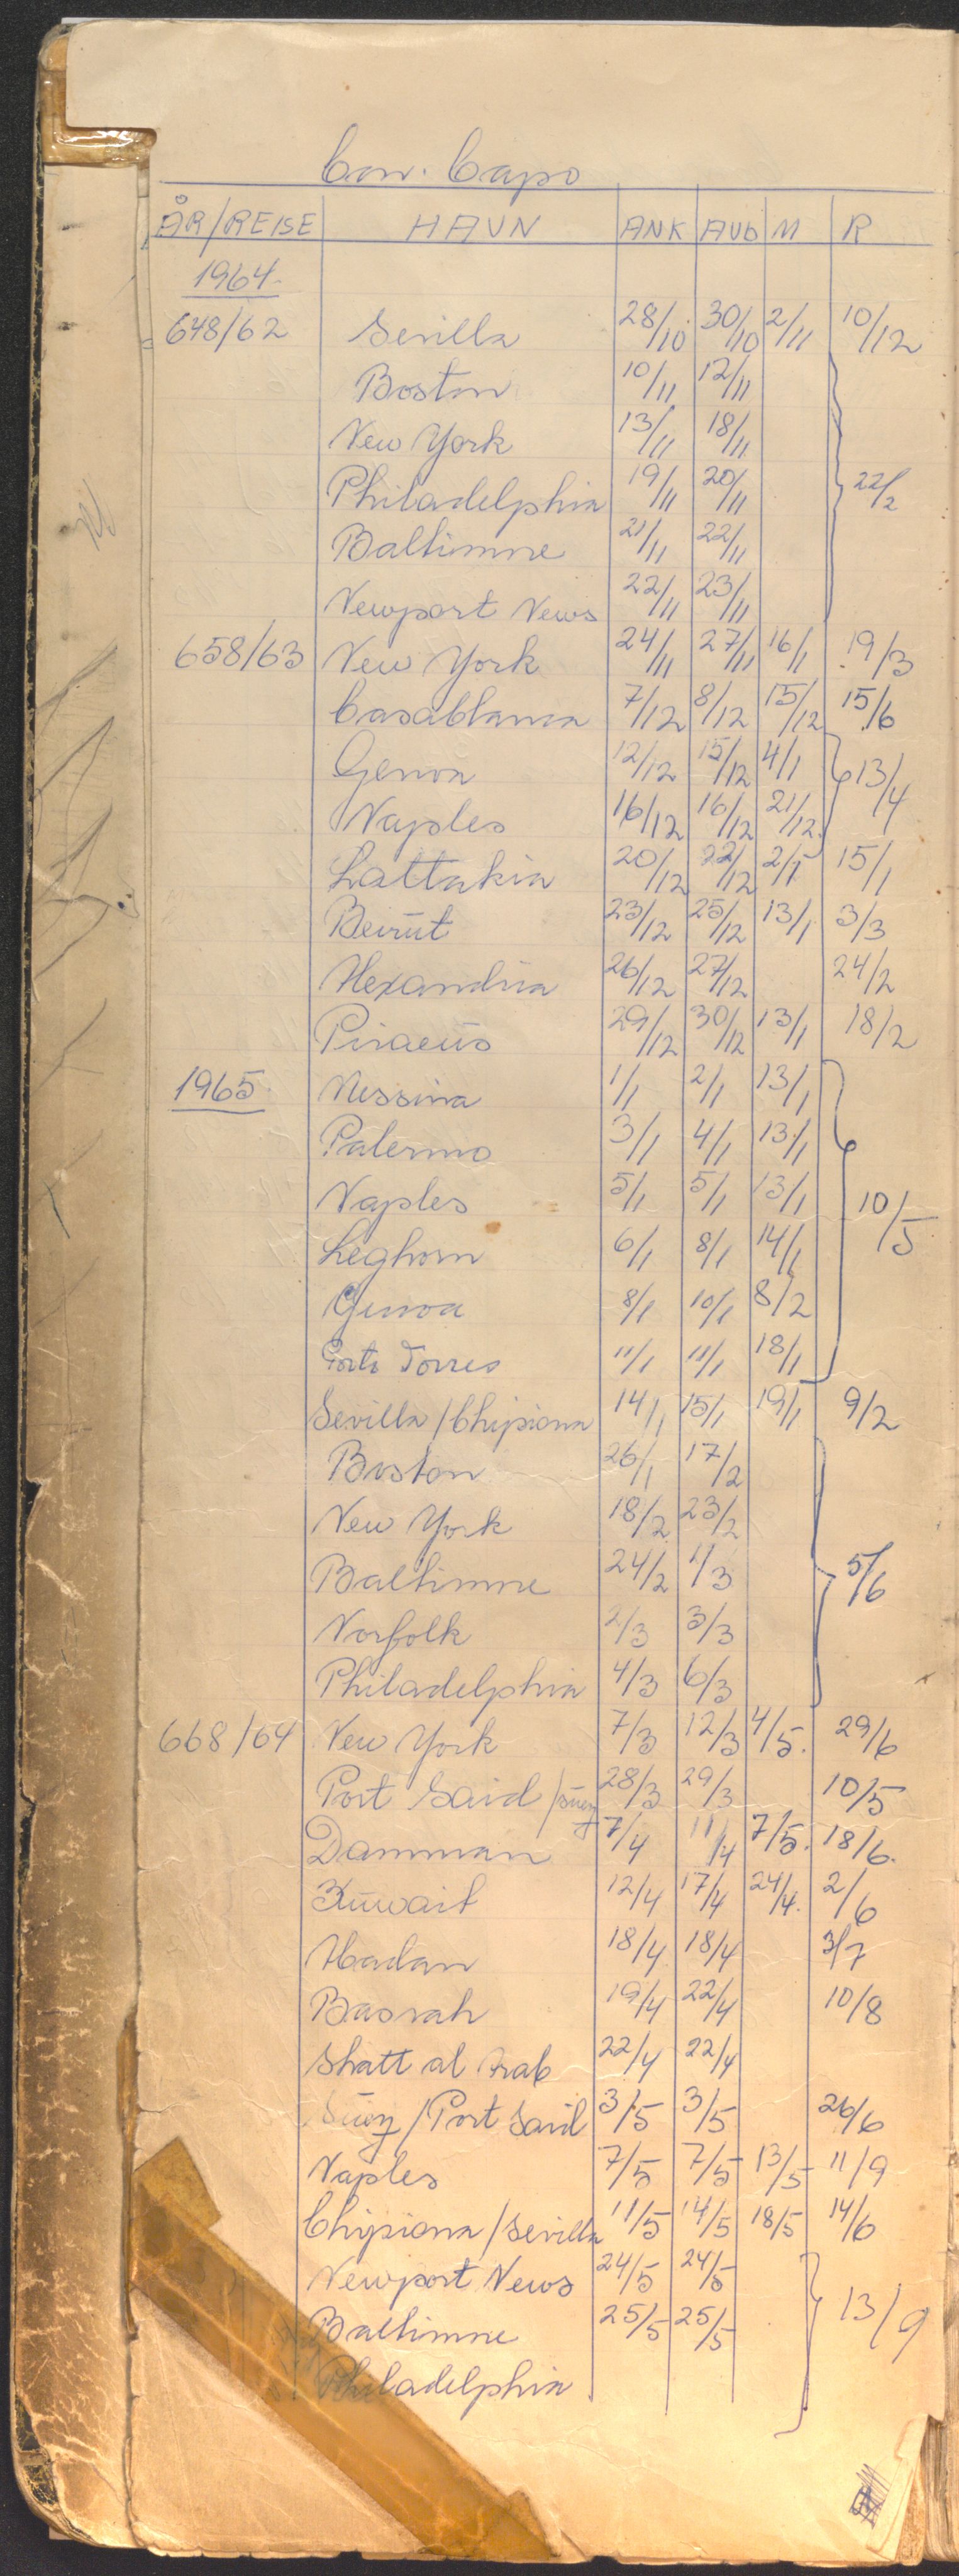 Con. Capo
ÅR/REISE HAVN ANK AVG M R
1964
648/62 Sevilla 28/10 30/10 2/11 10/12
Boston 10/11 12/11
New York 13/11 18/11
Philadelphia 19/11 20/11 22/2
Baltimore 21/11 22/11
Newport News 22/11 23/11
658/63 New York 24/11 27/11 16/1 19/3
Casablanca 7/12 8/12 15/12 15/6
Genoa 12/12 15/12 4/1 13/4
Naples 16/12 16/12 21/12
Lattakia 20/12 22/12 2/1 15/1
Beirut 23/12 25/12 13/1 3/3
Alexandria 26/12 27/12 24/2
Piraeus 29/12 30/12 13/1 18/2
1965 Messina 1/1 2/1 13/1
Palermo 3/1 4/1 13/1
Naples 5/1 5/1 13/1 10/5
Leghorn 6/1 8/1 14/1
Genoa 8/1 10/1 8/2
Porto Torres 11/1 11/1 18/1
Sevilla/Chipiona 14/1 15/1 19/1 9/2
Boston 26/1 17/2
New York 18/2 23/2
Baltimore 24/2 1/3 5/6
Norfolk 2/3 3/3
Philadelphia 4/3 6/3
668/64 New York 7/3 12/3 4/5. 29/6
Port Said/Suez 28/3 29/3 10/5
Damman 7/4 11/4 7/5. 18/6.
Kuwait 12/4 17/4 24/4. 2/6
Abadan 18/4 18/4 3/7
Basrah 19/4 22/4 10/8
Shatt al Arab 22/4 22/4
Suez/Port Said 3/5 3/5 26/6
Naples 7/5 7/5 13/5 11/9
Chipiona/Sevilla 11/5 14/5 18/5 14/6
Newport News 24/5 24/5
Baltimore 25/5 25/5 13/9
Philadelphia